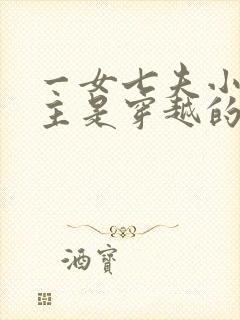 一女七夫小
主是穿越的
酒寶